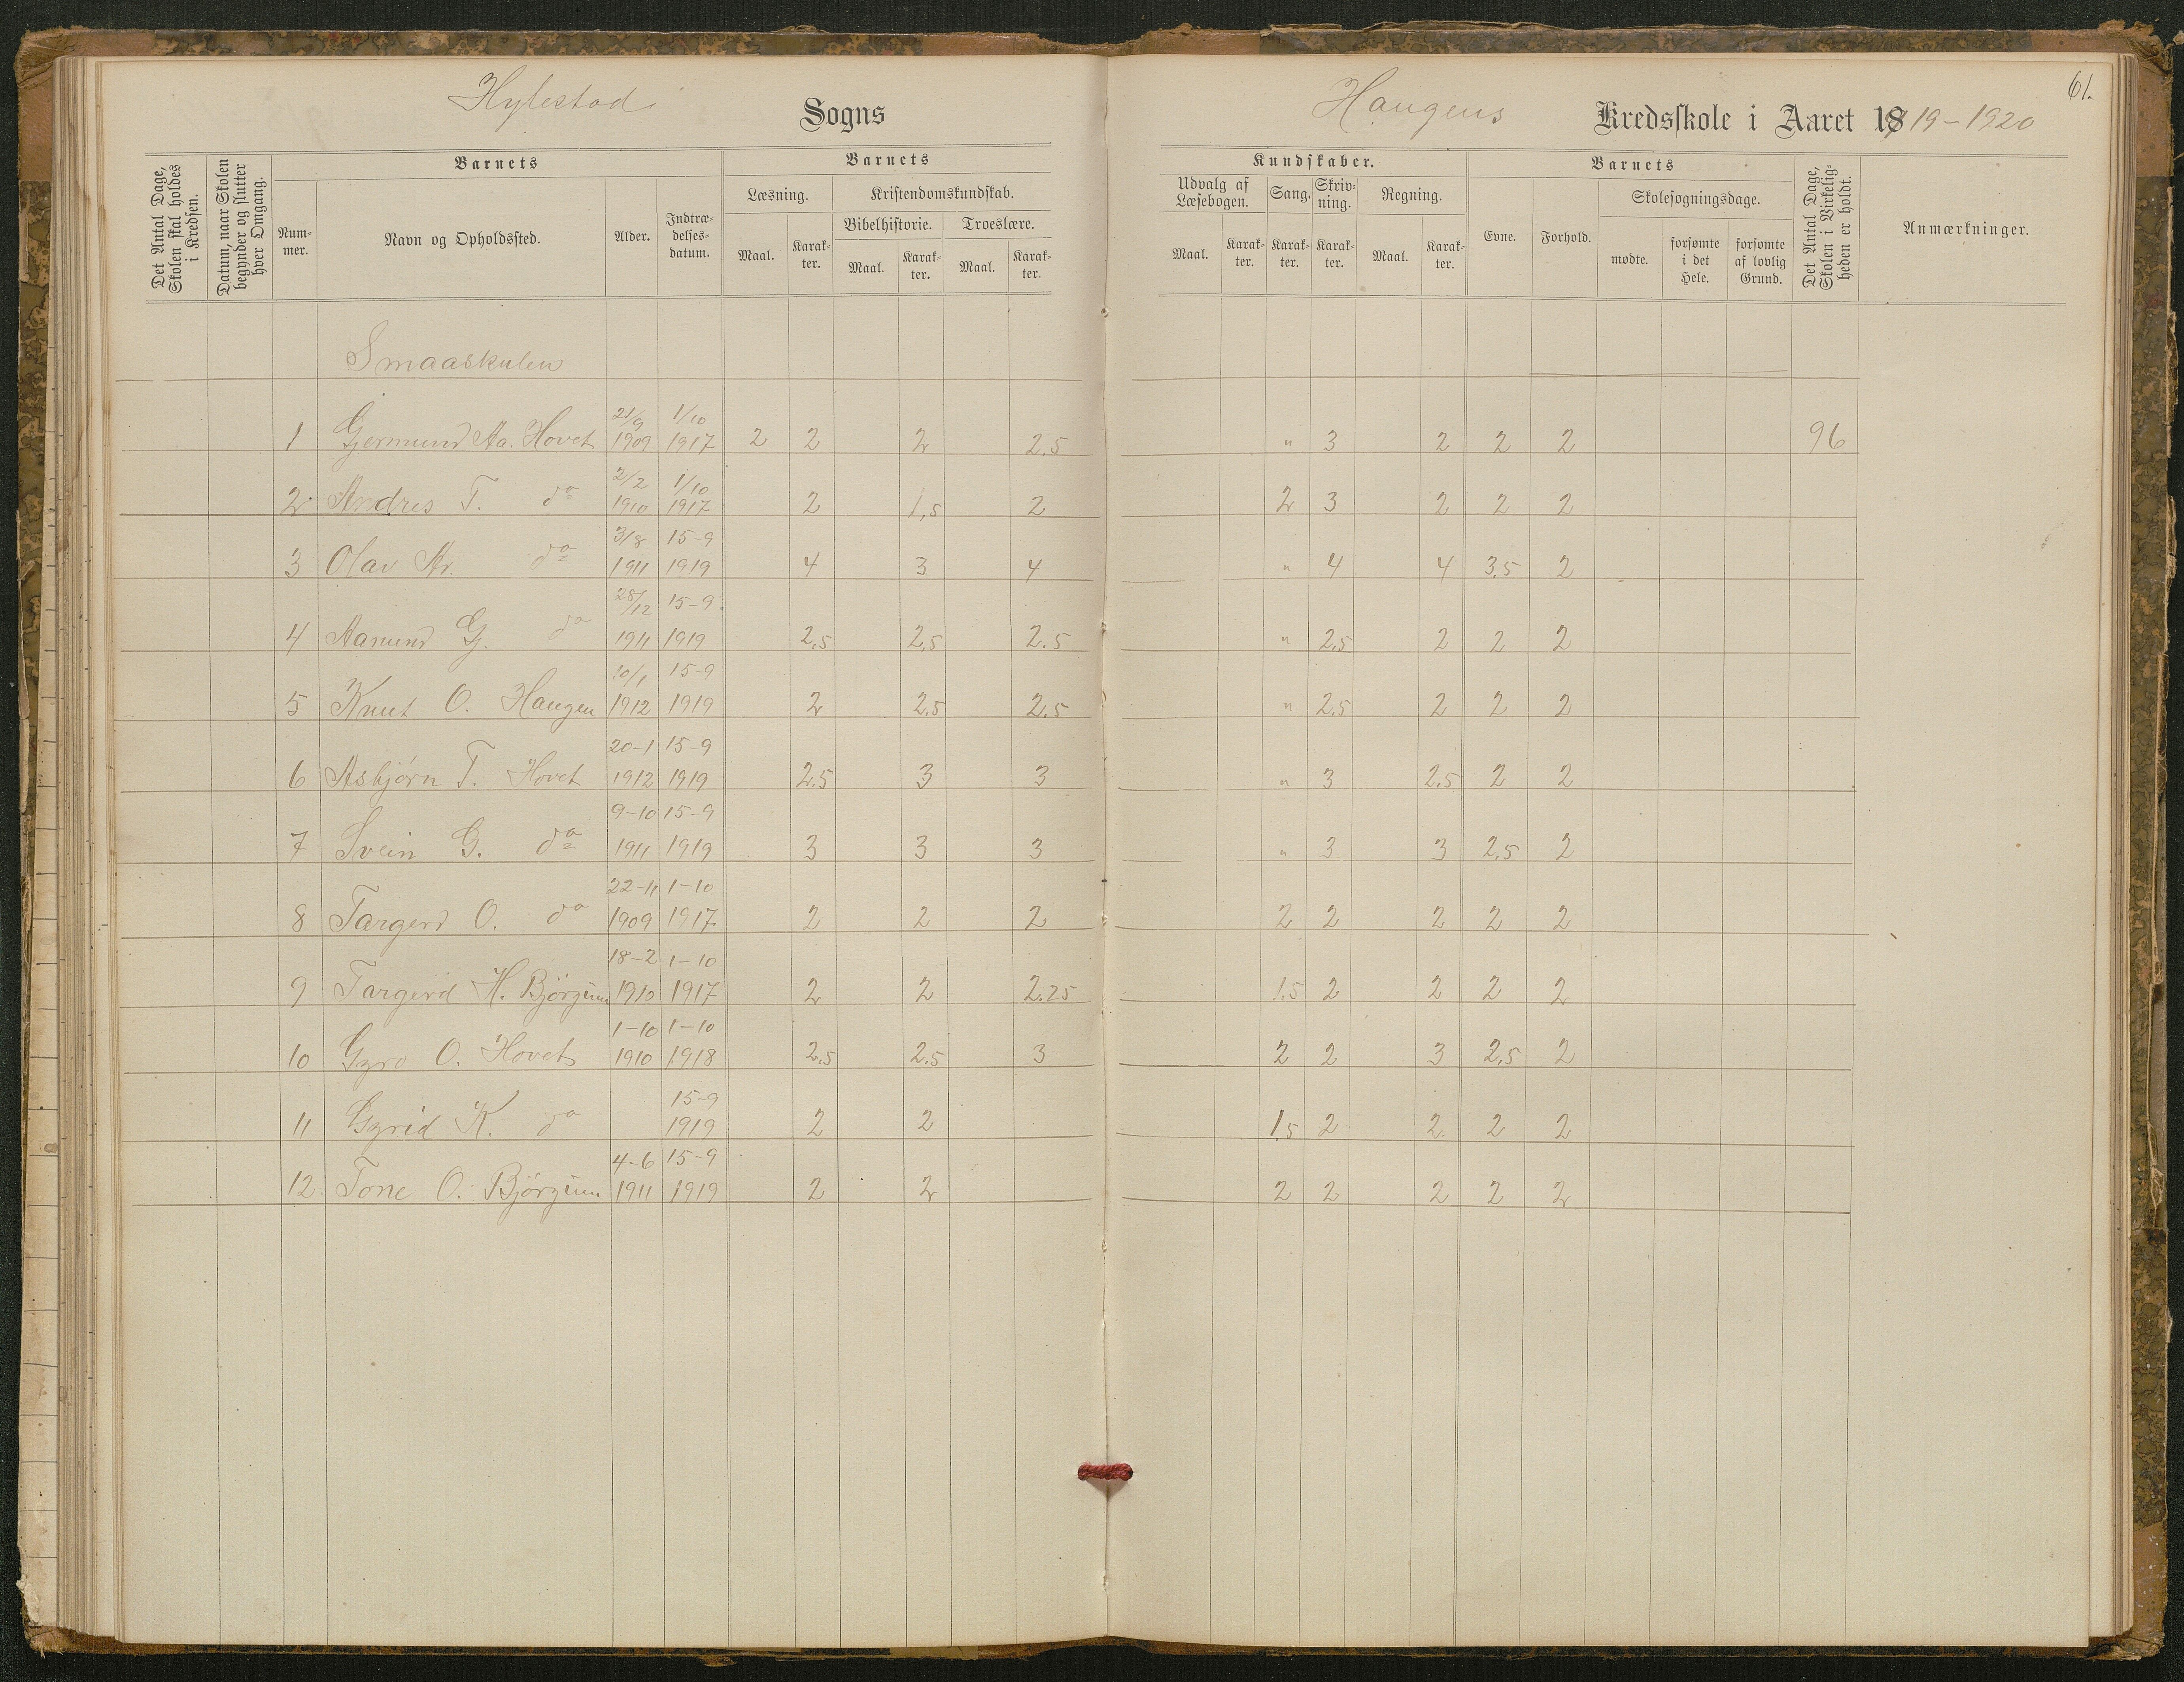 Hylestad Sogns Haugens Kredsskole i Aaret 1919-1920
61.
Det Antal Dage, Skolen skal holdes i Kredsen.
Datum, naar Skolen begynder og slutter hver Omgang.
Barnets
Nummer.
Navn og Opholdssted.
Alder.
Indtrædelsesdatum.
Barnets
Læsning.
Maal. Karakter.
Kristendomskundskab.
Bibelhistorie. Troeslære.
Maal. Karakter. Maal. Karakter.
Kundskaber.
Udvalg af Læsebogen. Sang. Skrivning. Regning.
Maal. Karakter. Karakter. Karakter. Maal. Karakter.
Barnets
Evne. Forhold.
Skolesøgningsdage.
mødte. forsømte i det Hele. forsømte af lovlig Grund.
Det Antal Dage, Skolen i Virkeligheden er holdt.
Anmærkninger.
Smaaskulen
1 Gjermund Aa. Hovet 21/9 1909 1/10 1917 2 2 2 2.5 " 3 2 2 2 96
2 Andres T. do 2/2 1910 1/10 1917 2 1,5 2 2 3 2 2 2
3 Olav Ar. do 3/8 1911 15-9 1919 4 3 4 " 4 4 3.5 2
4 Aanund G. do 28/12 1911 15-9 1919 2,5 2,5 2.5 " 2,5 2 2 2
5 Knut O. Haugen 10/1 1912 15-9 1919 2 2,5 2.5 " 2,5 2 2 2
6 Asbjörn T. Hovet 20-1 1912 15-9 1919 2.5 3 3 " 3 2.5 2 2
7 Svein G. do 9-10 1911 15-9 1919 3 3 3 " 3 3 2.5 2
8 Targerd O. do 22-11 1909 1-10 1917 2 2 2 2 2 2 2 2
9 Targerd H. Björgum 18-2 1910 1-10 1917 2 2 2.25 1.5 2 2 2 2
10 Gyro O. Hovet 1-10 1910 1-10 1918 2,5 2.5 3 2 2 3 2,5 2
11 Gyrid K. do 15-9 1919 2 2 1.5 2 2 2 2
12. Tone O. Björgum 4-6 1911 15-9 1919 2 2 2 2 2 2 2